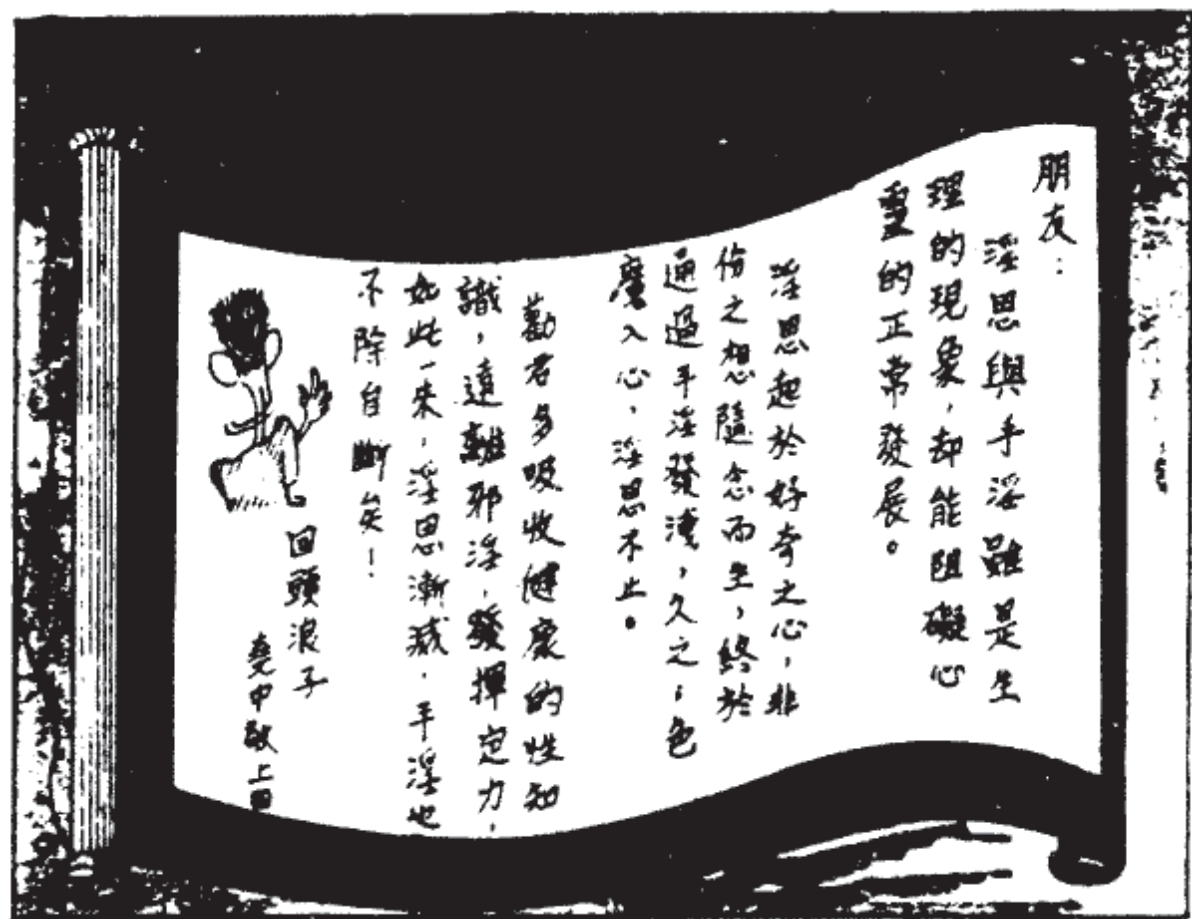 朋友：
淫思與手淫雖是生
理的現象，却能阻礙心
靈的正常發展。
淫思起於好奇之心，非
份之想隨念而生，終於
通過手淫發洩，久之，色
魔入心，淫思不止。
勸君多吸收健康的性知
識，遠離邪淫，發揮定力，
如此一來，淫思漸减，手淫也
不除自斷矣！
回頭浪子
中敬上